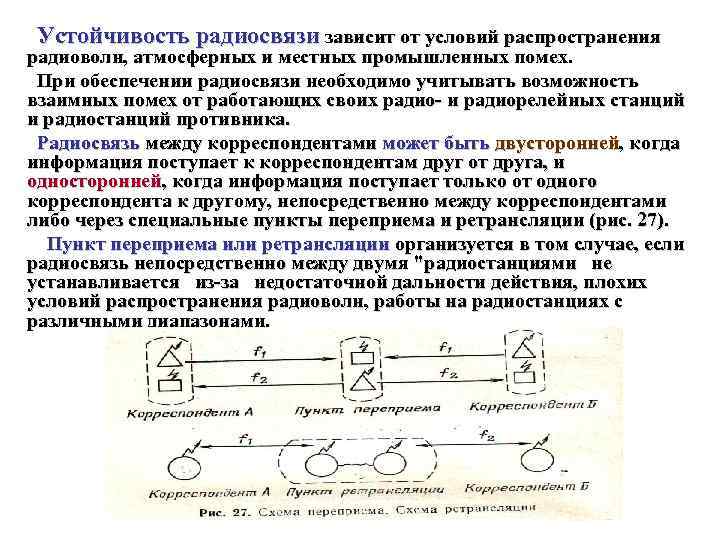 Устойчивость радиосвязи зависит от условий распространения
радиоволн, атмосферных и местных промышленных помех.
При обеспечении радиосвязи необходимо учитывать возможность
взаимных помех от работающих своих радио- и радиорелейных станций
и радиостанций противника.
Радиосвязь между корреспондентами может быть двусторонней, когда
информация поступает к корреспондентам друг от друга, и
односторонней, когда информация поступает только от одного
корреспондента к другому, непосредственно между корреспондентами
либо через специальные пункты переприема и ретрансляции (рис. 27).
Пункт переприема или ретрансляции организуется в том случае, если
радиосвязь непосредственно между двумя "радиостанциями не
устанавливается из-за недостаточной дальности действия, плохих
условий распространения радиоволн, работы на радиостанциях с
различными диапазонами.
f₁ f₁
f₂ f₂
Корреспондент А Пункт переприема Корреспондент Б
f₁ f₂
Корреспондент А Пункт ретрансляции Корреспондент Б
Рис. 27. Схема переприема. Схема ретрансляции